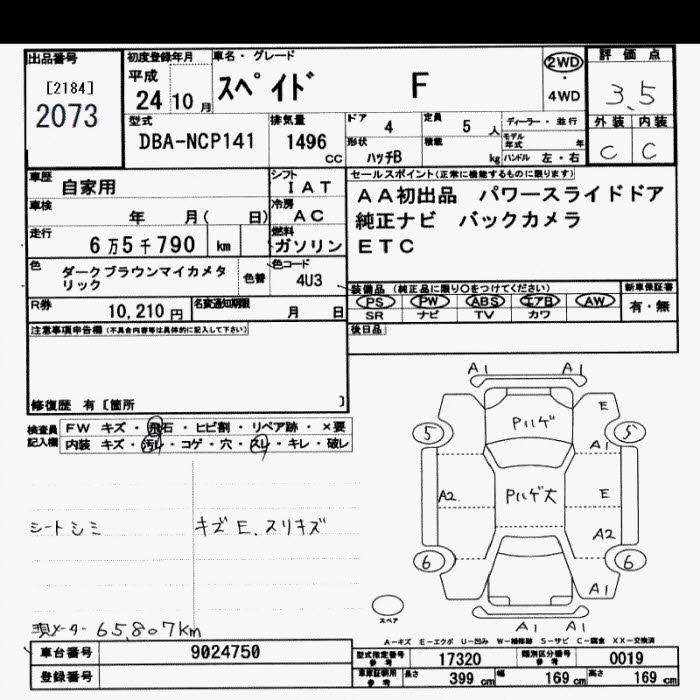 出品番号 初度登録年月 車名・グレード 評価点
[2184] 平成 スペイド F 2WD
2073 24 10月 ・ 3.5
4WD
型式 排気量 ドア 4 定員 5人 ディーラー・並行 外装 内装
DBA-NCP141 1496 CC 形状 ハッチB 積載 kg モデル年式 年 C C
ハンドル 左・右
車歴 自家用 シフト IAT セールスポイント(正常に機能するものに限ります)
車検 年 月( 日) 冷房 AC AA初出品 パワースライドドア
走行 6万5千790 km 燃料 ガソリン 純正ナビ バックカメラ
色 ダークブラウンマイカメタリック 色替 色コード 4U3 ETC
R券 10,210円 名変通知期限 月 日 装備品(純正品に限り○をつけてください) 新車保証書
PS PW ABS エアB AW 有・無
SR ナビ TV カワ
注意事項申告欄(不具合内容等は具体的に記入して下さい) 後日品
修復歴 有[箇所 ]
検査員記入欄 FW キズ・飛石・ヒビ割・リペア跡・×要
内装 キズ・汚レ・コゲ・穴・スレ・キレ・破レ
A1 A1
Pハゲ E
5 5
A1
A2 Pハゲ大 E
A2
シートシミ キズE、スリキズ
6 6
A1
スペア
A1 A1
現メーター 65,807km
A-キズ E-エクボ U-凹み W-補修跡 S-サビ C-腐食 XX-交換済
車台番号 9024750 型式指定番号 参考 17320 類別区分番号 参考 0019
登録番号 車庫証明用 参考 長さ 399 cm 幅 169 cm 高さ 169 cm